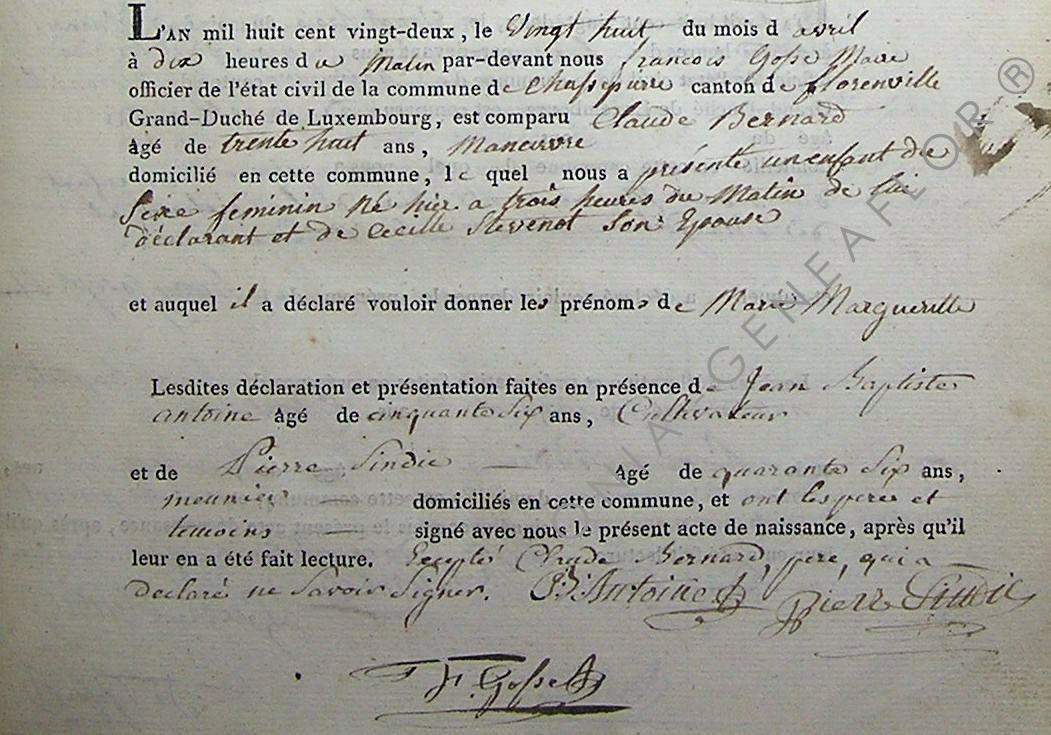 L'AN mil huit cent vingt-deux, le Vingt huit du mois d'avril
à dix heures du Matin par-devant nous francois Gosse Maire
officier de l'état civil de la commune de Chassepierre canton de florenville
Grand-Duché de Luxembourg, est comparu Claude Bernard
âgé de trente huit ans, Maneuvre
domicilié en cette commune, le quel nous a présenté un enfant du
Sexe feminin né hier a trois heures du Matin de lui
déclarant et de Cecille Stevenot Son Epouse
et auquel il a déclaré vouloir donner les prénoms de Marie Margueritte
Lesdites déclaration et présentation faites en présence de Jean Baptiste
antoine âgé de cinquante Six ans, Cultivateur
et de Pierre Sindic âgé de quarante Six ans,
meunier domiciliés en cette commune, et ont les peres et
temoins signé avec nous le présent acte de naissance, après qu'il
leur en a été fait lecture. Excepté Claude Bernard, père, qui a
declaré ne Savoir Signer. Antoine Pierre Sindic
F. Gosse
GENEAFLOR ®